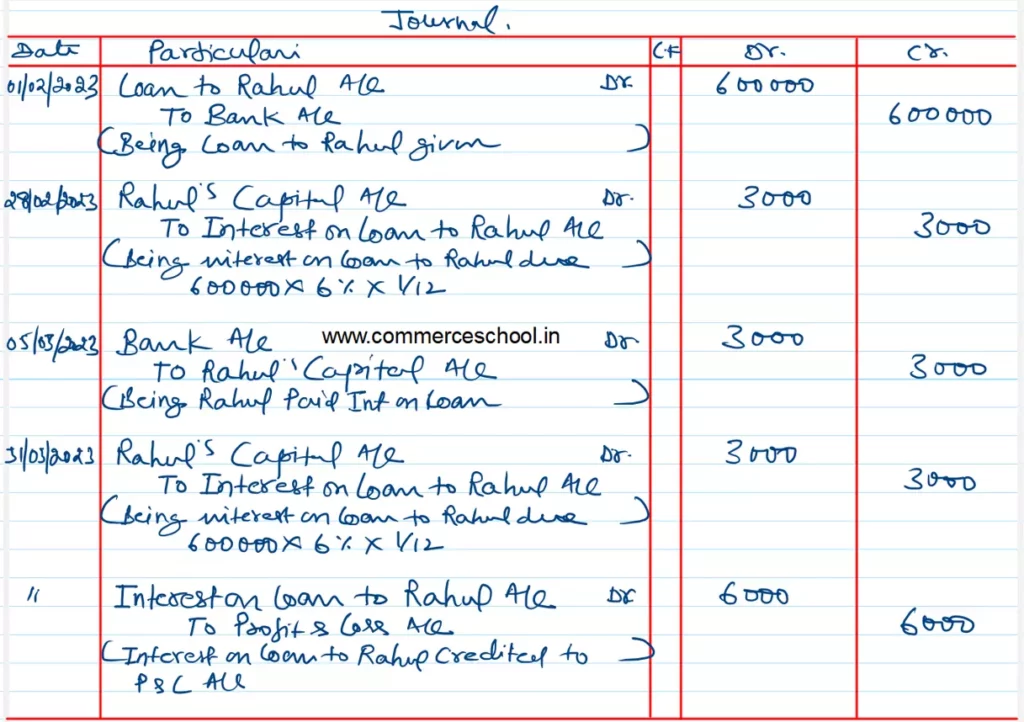 Journal.
Date Particulars CF Dr. Cr.
01/02/2023 Loan to Rahul A/c Dr. 600000
To Bank A/c 600000
(Being Loan to Rahul given)
28/02/2023 Rahul's Capital A/c Dr. 3000
To Interest on Loan to Rahul A/c 3000
(Being interest on loan to Rahul due)
600000 x 6% x 1/12
05/03/2023 Bank A/c www.commerceschool.in Dr. 3000
To Rahul's Capital A/c 3000
(Being Rahul Paid Int on Loan)
31/03/2023 Rahul's Capital A/c Dr. 3000
To Interest on Loan to Rahul A/c 3000
(Being interest on loan to Rahul due)
600000 x 6% x 1/12
" Interest on loan to Rahul A/c Dr 6000
To Profit & Loss A/c 6000
(Interest on loan to Rahul Credited to)
P & L A/c